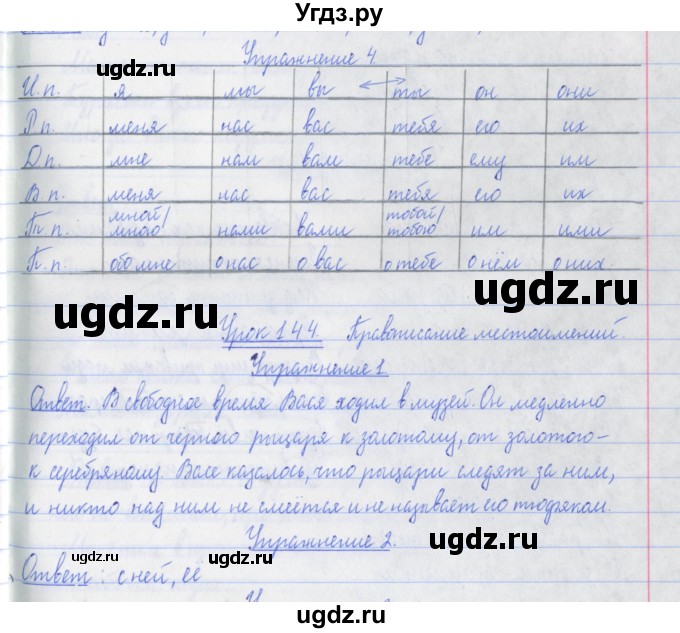 Угдз.ру
Упражнение 4.
И.п. я мы вы ты он они
Р.п. меня нас вас тебя его их
Д.п. мне нам вам тебе ему им
В.п. меня нас вас тебя его их
Т.п. мной/мною нами вами тобой/тобою им ими
П.п. обо мне о нас о вас о тебе о нём о них.
Урок 144. Правописание местоимений.
Упражнение 1
Ответ. В свободное время Вася ходил в музей. Он медленно
переходил от чёрного рыцаря к золотому, от золотого –
к серебряному. Васе казалось, что рыцари следят за ним,
и никто над ним не смеётся и не называет его тюфяком.
Упражнение 2.
Ответ: с ней, её
ugdz.ru
ugdz.ru
ugdz.ru
ugdz.ru
ugdz.ru
ugdz.ru
ugdz.ru
ugdz.ru
ugdz.ru
ugdz.ru